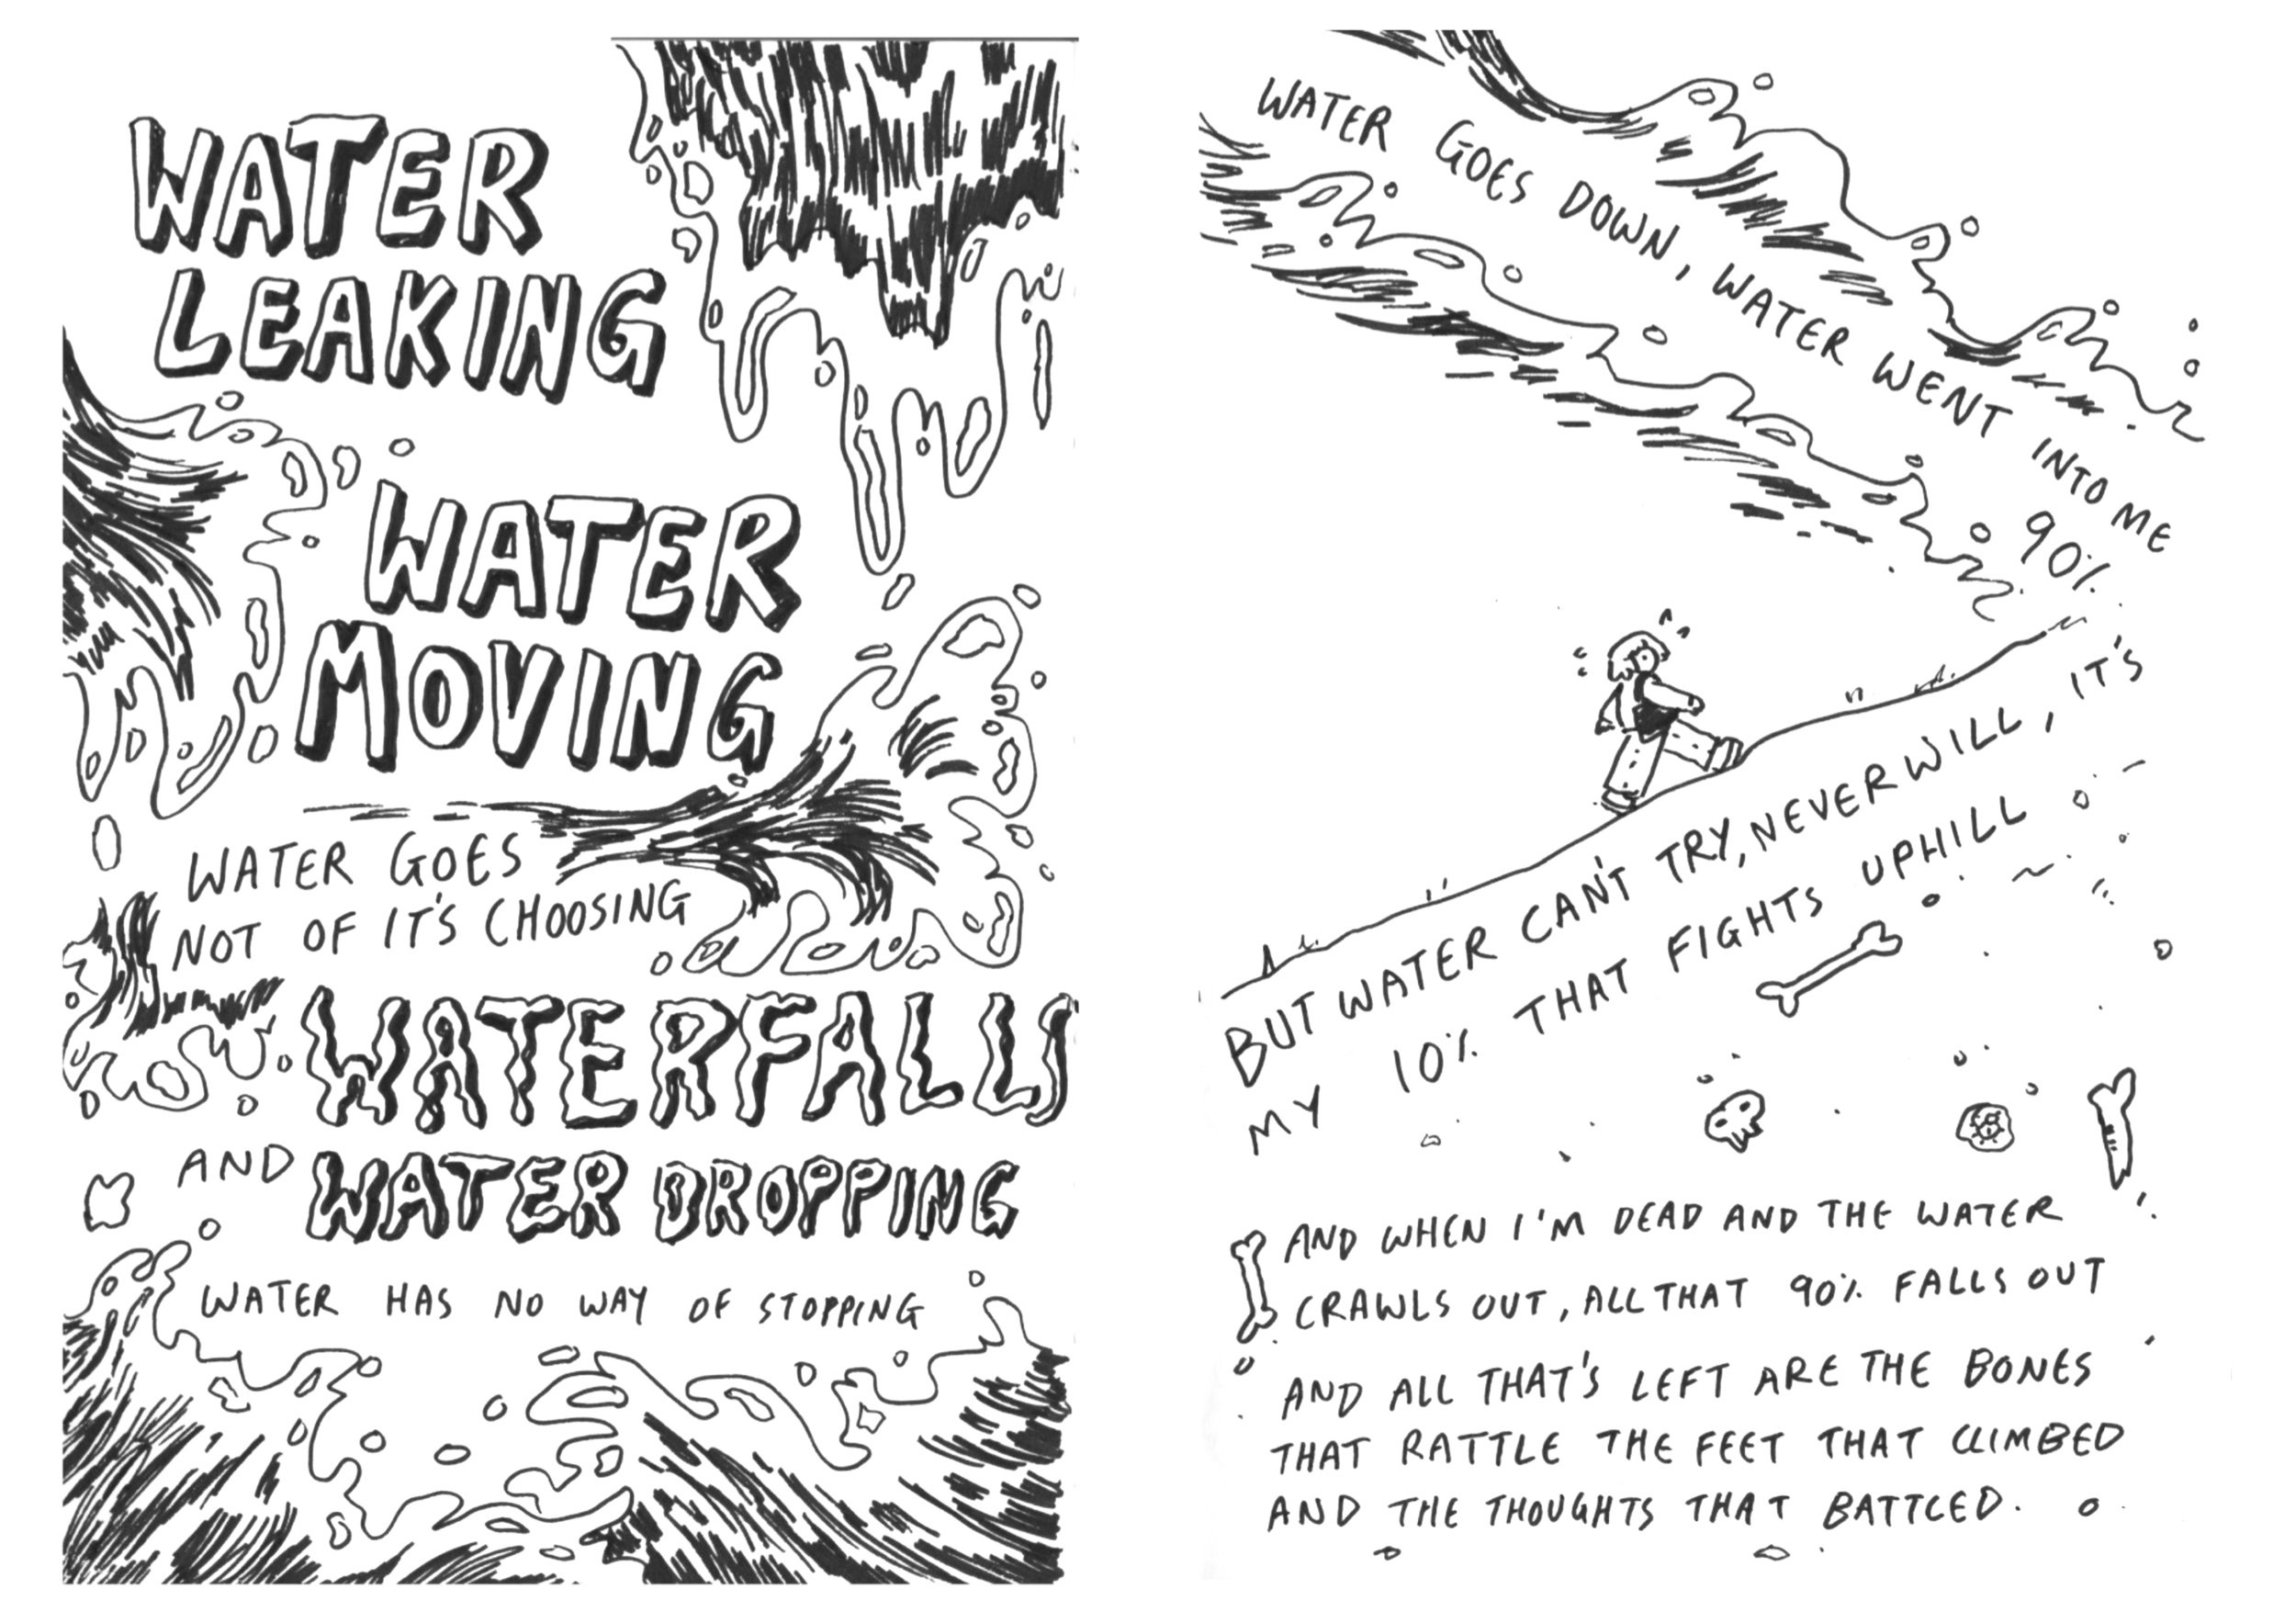 WATER
LEAKING
WATER
MOVING
WATER GOES
NOT OF IT'S CHOOSING
WATERFALLS
AND WATER DROPPING
WATER HAS NO WAY OF STOPPING
WATER GOES DOWN, WATER WENT INTO ME
90%
BUT WATER CAN'T TRY, NEVER WILL, IT'S
MY 10% THAT FIGHTS UPHILL
AND WHEN I'M DEAD AND THE WATER
CRAWLS OUT, ALL THAT 90% FALLS OUT
AND ALL THAT'S LEFT ARE THE BONES
THAT RATTLE THE FEET THAT CLIMBED
AND THE THOUGHTS THAT BATTLED.